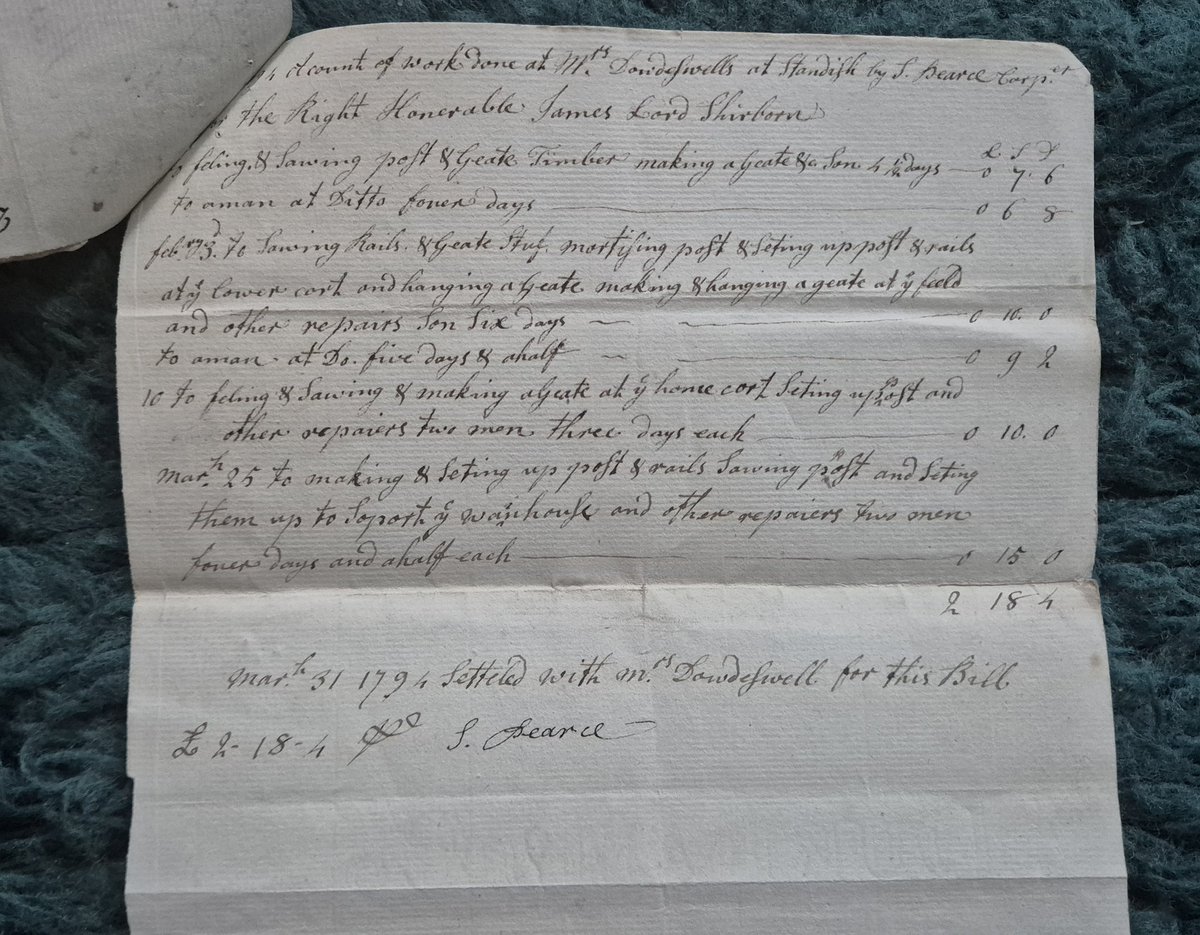 Acount of work done at Mrs Dowdeswells at Standish by S. Pearce Carper
the Right Honerable James Lord Shirborn
£ S D
feling & Sawing post & Geate Timber making a Geate & Son 4 1/2 days — 0 7. 6
to a man at Ditto fouer days — 0 6 8
febry 3d. to Sawing Rails. & Geate Stuf. mortising post & Seting up post & rails
at ye lower cort and hanging a Geate making & hanging a geate at ye field
and other repairs Son Six days — 0 10. 0
to a man at Do. five days & a half — 0 9 2
10 to feling & Sawing & making a Geate at ye home cort Seting up Post and
other repaiers two men three days each — 0 10. 0
Marh. 25 to making & Seting up post & rails Sawing post and Seting
them up to Soport ye wainhouse and other repaiers two men
fouer days and a half each — 0 15 0
2 18 4
Marh. 31 1794 Setteled with Mrs. Dowdeswell for this Bill
£ 2-18-4 S. Pearce
3